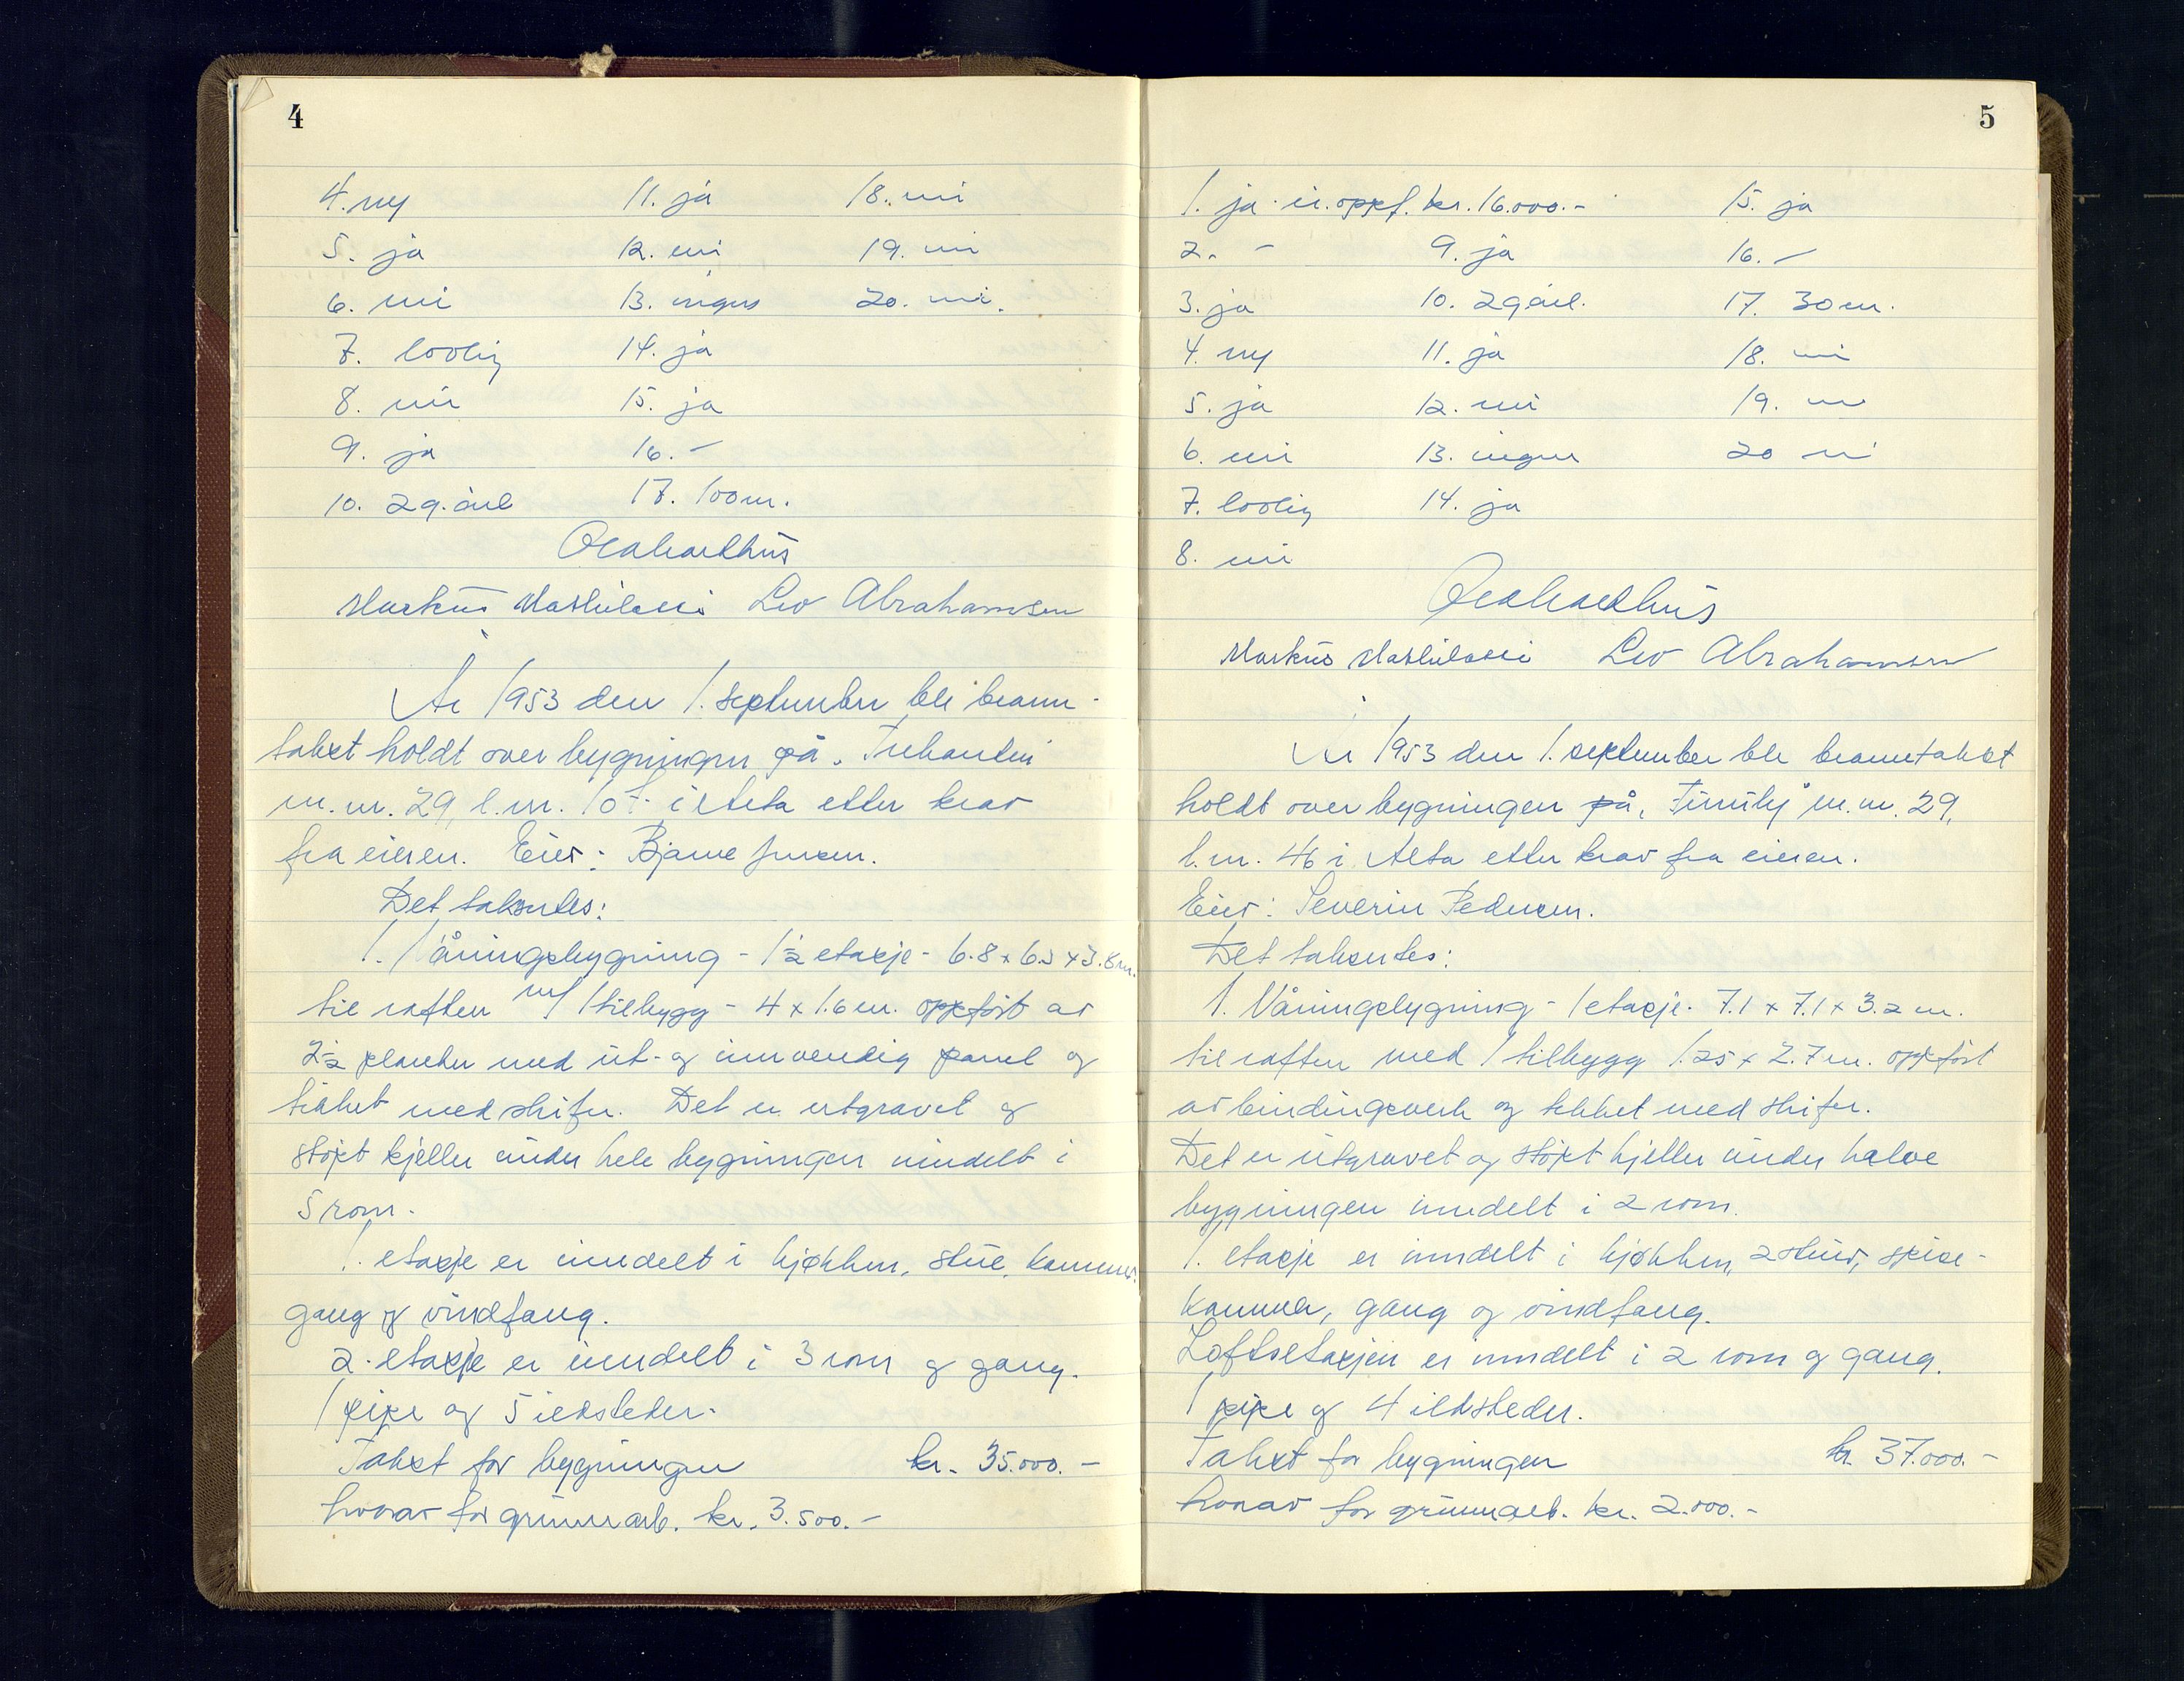 4
4. ny 11. ja 18. nei
5. ja 12. nei 19. nei
6. nei 13. ingen 20. nei.
7. lovlig 14. ja
8. nei 15. ja
9. ja 16. -
10. 29. aul 17. 100 m.
Markus Leo Abrahamsen
År 1953 den 1. september ble brann-
takst holdt over bygningen på "Trekanten"
m.nr. 29, l.nr. 107 i Alta etter krav
fra eieren. Eier: Bjarne Jensen.
Det takseres:
1. Våningsbygning - 1½ etasje - 6.8 x 6.3 x 3.8 m.
til raften m/ 1 tilbygg - 4 x 1.6 m. oppført av
2½ planker med ut- og innvendig panel og
tekket med skifer. Det er utgravet og
støpt kjeller under hele bygningen inndelt i
5 rom.
1. etasje er inndelt i kjøkken, stue, kammer,
gang og vindfang.
2. etasje er inndelt i 3 rom og gang.
1 pipe og 5 ildsteder.
Takst for bygningen kr. 35.000.-
hvorav for grunnarb. kr. 3.500.-
5
1. ja er. oppf. kr. 16.000.- 15. ja
2. - 9. ja 16. -
3. ja 10. 29 aul. 17. 30 m.
4. ny 11. ja 18. nei
5. ja 12. nei 19. nei
6. nei 13. ingen 20 nei
7. lovlig 14. ja
8. nei
Markus Leo Abrahamsen
År 1953 den 1. september ble branntakst
holdt over bygningen på, m.nr. 29,
l.nr. 46 i Alta etter krav fra eieren.
Eier: Severin Pedersen.
Det takseres:
1. Våningsbygning - 1 etasje. 7.1 x 7.1 x 3.2 m.
til raften med 1 tilbygg 1.25 x 2.7 m. oppført
av bindingsverk og tekket med skifer.
Det er utgravet og støpt kjeller under halve
bygningen inndelt i 2 rom.
1. etasje er inndelt i kjøkken, 2 stuer, spise-
kammer, gang og vindfang.
Loftsetasjen er inndelt i 2 rom og gang.
1 pipe og 4 ildsteder.
Takst for bygningen kr. 37.000.-
hvorav for grunnarb. kr. 2.000.-